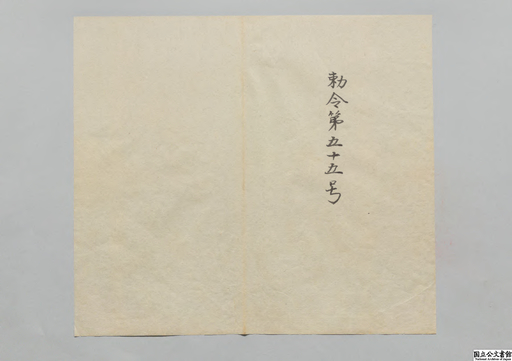 勅令第五十五号
国立公文書館
National Archives of Japan